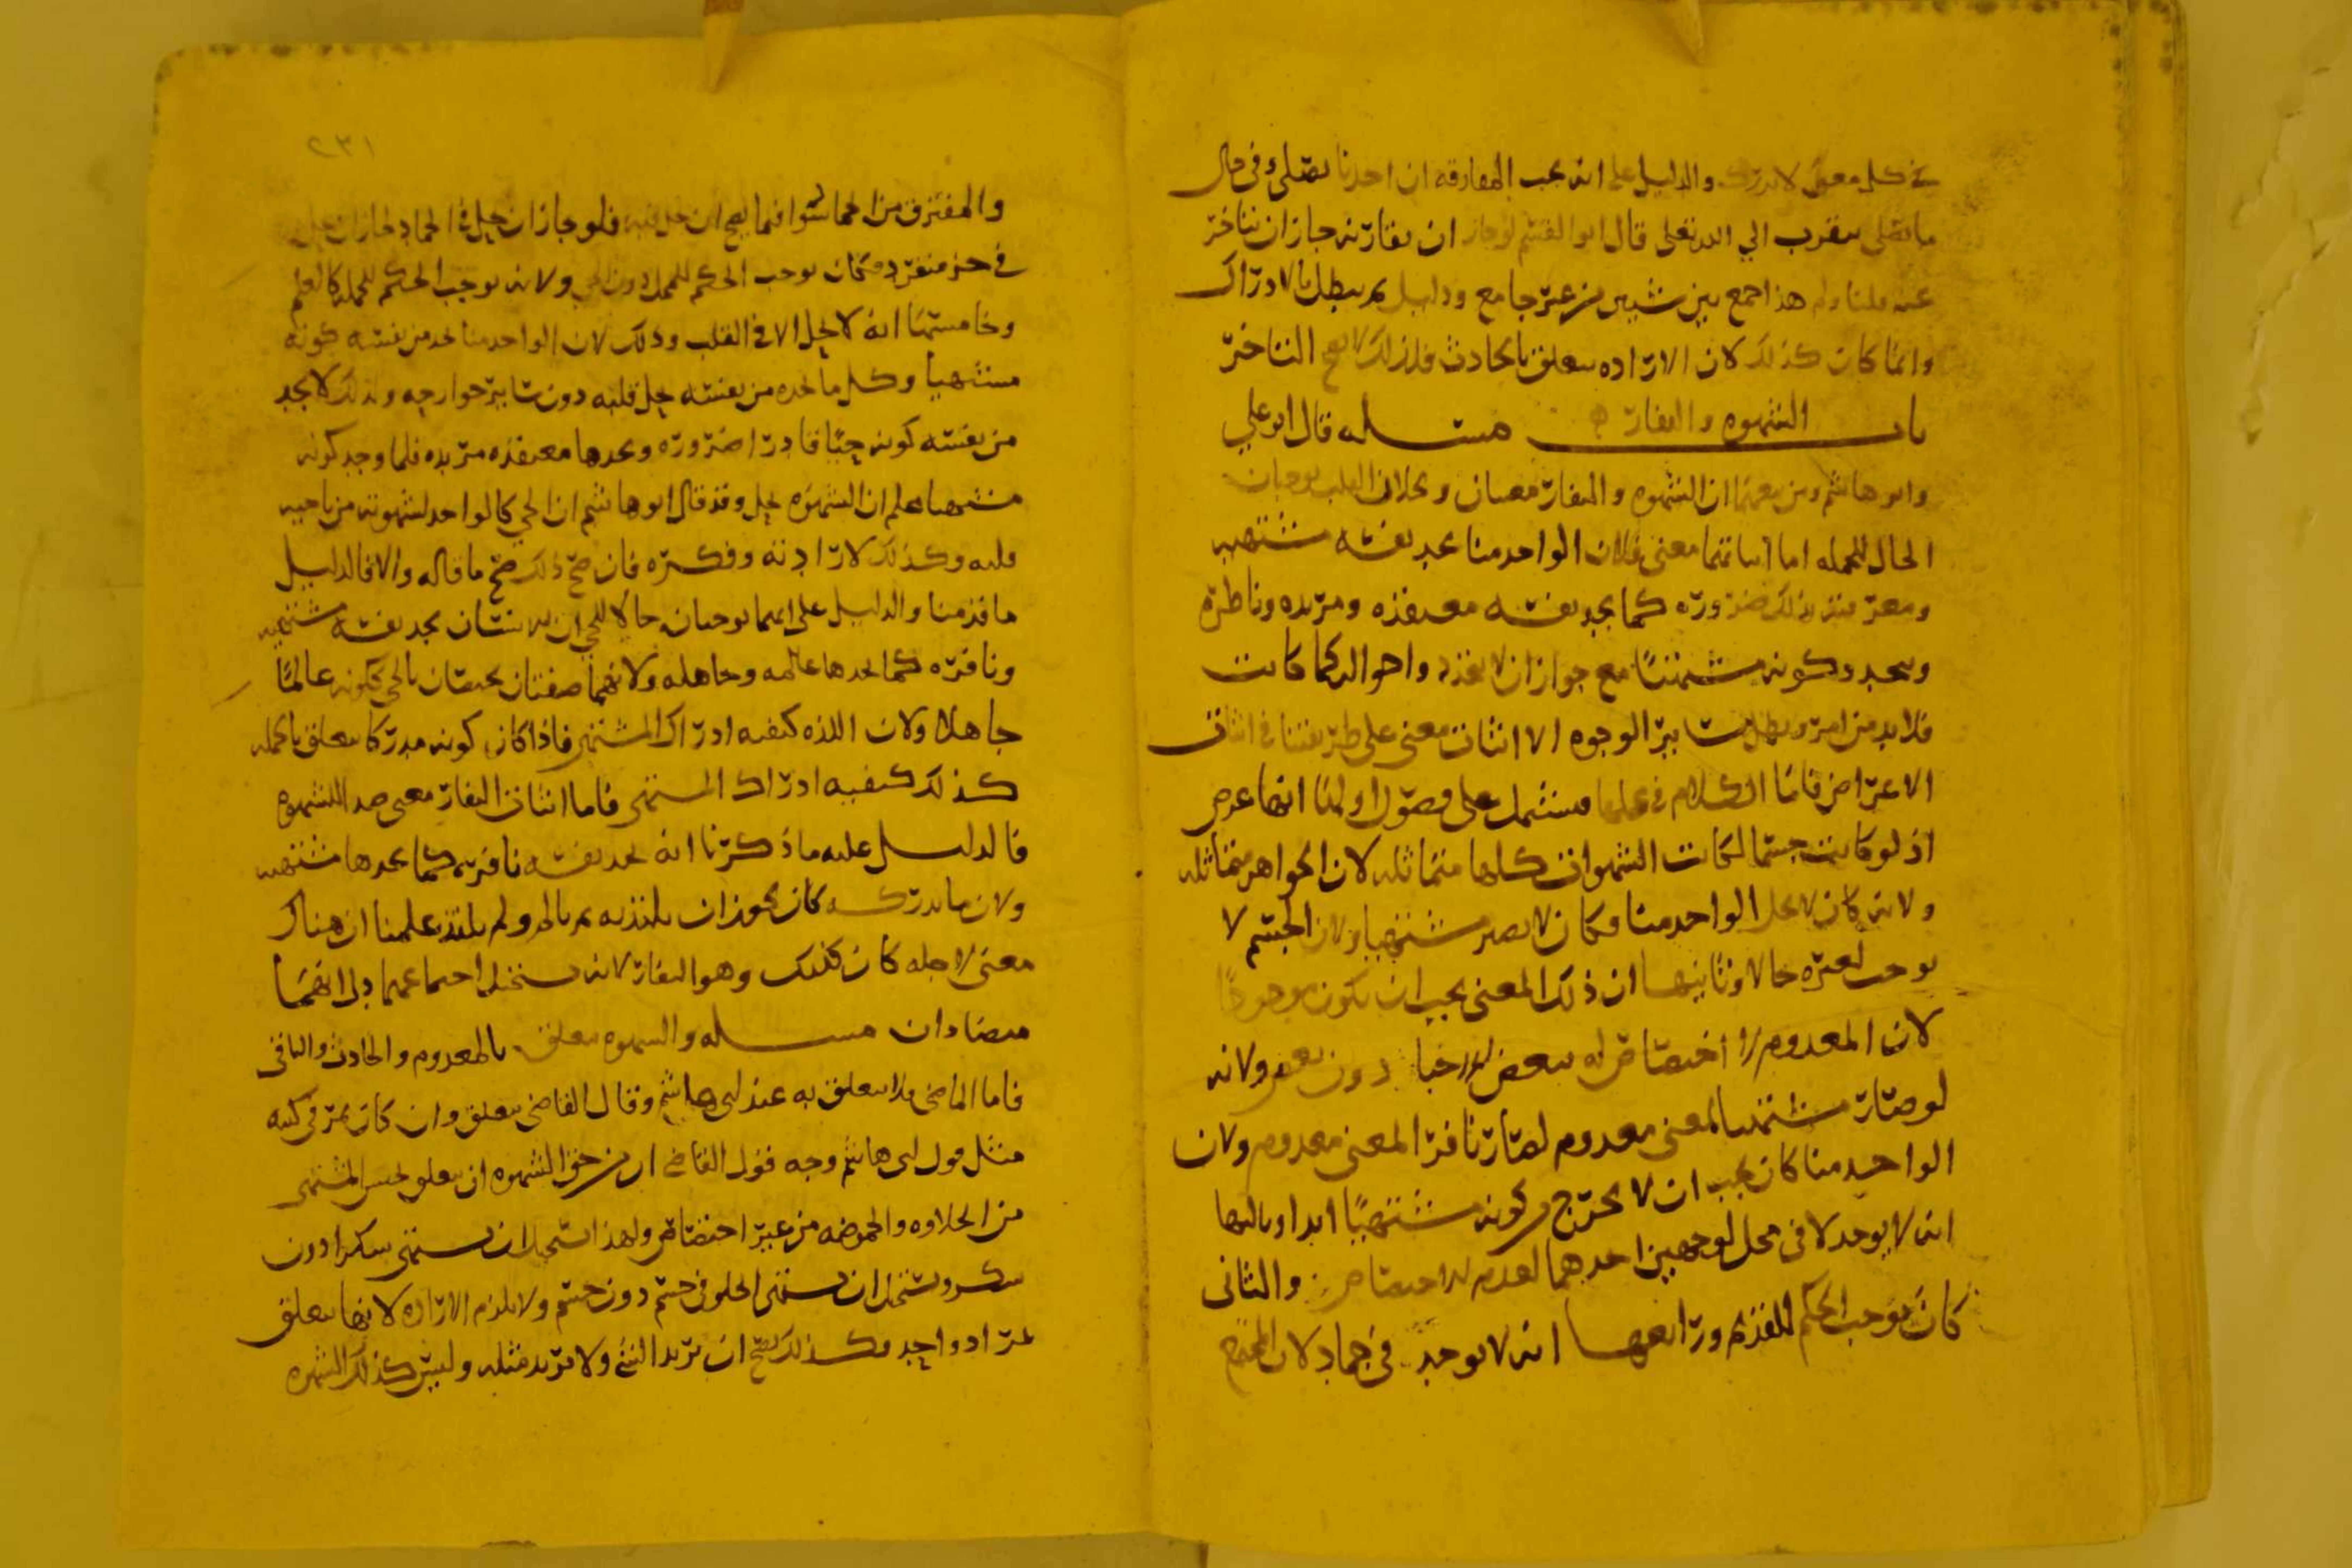 في كل معنى لا يدرك والدليل على انه يجب المفارقه ان احدنا يصلي في حال
ما يصلي يتقرب الي الله تعلى قال ابو القسم لو جاز ان يقارنه جاز ان يتأخر
عنه قلنا ولم هذا جمع بين شيين من غير جامع ودليل ثم يبطل بالادراك
وانما كان كذلك لان الاراده يتعلق بالحادث فلذلك لا يصح التأخر
باب الشهوه والنفار مسئله قال ابو علي
وابو هاشم ومن تبعهما ان الشهوه والنفار معنيان ويحلان القلب يوجبان
الحال للجمله اما اثباتهما معنى فلان الواحد منا يجد نفسه مشتهيه
ذلك ضروره كما يجد نفسه معتقده ومريده وناظره
ويتجدد كونه مشتهيًا مع جواز ان لا يتجدد واحواله كما كانت
فلا بد من امر ويبطل سائر الوجوه الا اثبات معنى على طريقتنا في اثبات
الاعراض فاما الكلام في محلها مشتمل على فصول اولها انها عرض
اذ لو كانت جسما لكانت الشهوات كلها متماثله لان الجواهر متماثله
ولانه كان لا يحل الواحد منا وكان لا يصير مشتهيا ولان الجسم لا
يوجب لغيره حالا وثانيها ان ذلك المعنى يجب ان يكون موجودًا
لان المعدوم لا اختصاص له ببعض الاحيا دون بعض ولانه
لو صار مشتهيا لمعنى معدوم لصار نافرا لمعنى معدوم ولان
الواحد منا كان يجب ان لا يخرج من كونه مشتهيًا ابدا وثالثها
انه لا يوجد لا في محل لوجهين احدهما لعدم الاختصاص والثاني
كان يوجب الحكم للقديم ورابعها انه لا يوجد في جماد لان المجتمع
٢٣١
والمفترق من الجماد سوا فيما يصح ان يحل فيه فلو جاز ان يحل في الجماد لجاز ان يحل
في جزء منفرد فكان يوجب الحكم للمحل دون الحي ولانه يوجب الحكم للجمله كالعلم
وخامسها انه لا يحل الا في القلب وذلك لان الواحد منا يجد من نفسه كونه
مشتهيا وكل ما يجده من نفسه يحل قلبه دون سائر جوارحه ولذلك لا يجد
من نفسه كونه حيّا قادرا ضروره ويجدها معتقده مريده فلما وجد كونه
مشتهيا علم ان الشهوه يحل وقد قال ابو هاشم ان الحي كالواحد لشهوته من ناحيه
قلبه وكذلك لارادته وفكره فان صح ذلك صح ما قاله والا فالدليل
ما قدمنا والدليل على انهما يوجبان حالا للحي ان الانسان يجد نفسه مشتهيه
ونافره كما يجدها عالمه وجاهله ولانهما صفتان يختصان بالحي ككونه عالمًا
جاهلا ولان اللذه كيفيه ادراك المشتهى فاذا كان كونه مدركا يتعلق بالجمله
كذلك كيفيه ادراك المشتهى فاما اثبات النفار معنى ضد الشهوه
فالدليل عليه ما ذكرنا انه يجد نفسه نافره كما يجدها مشتهيه
ولان ما يدركه كان يجوز ان يلتذ به ثم يالم ولم يلتذ علمنا ان هناك
معنى لاجله كان كذلك وهو النفار لانه يستحيل اجتماعهما دل انهما
متضادان مسئله والشهوه يتعلق بالمعدوم والحادث والباقي
فاما الماضي فلا يتعلق به عند ابي هاشم وقال القاضي يتعلق وان كان يمر في كتبه
مثل قول ابي هاشم وجه قول القاضي ان من حق الشهوه ان يتعلق بجنس المشتهى
من الحلاوه والحموضه من غير اختصاص ولهذا استحيل ان يشتهي سكرا دون
سكر ويستحيل ان يشتهي الحلو في جسم دون جسم ولا يلزم الاراده لانها يتعلق
بمراد واحد فكذلك يصح ان يريد الشي ولا يريد مثله وليس كذلك الشهوه